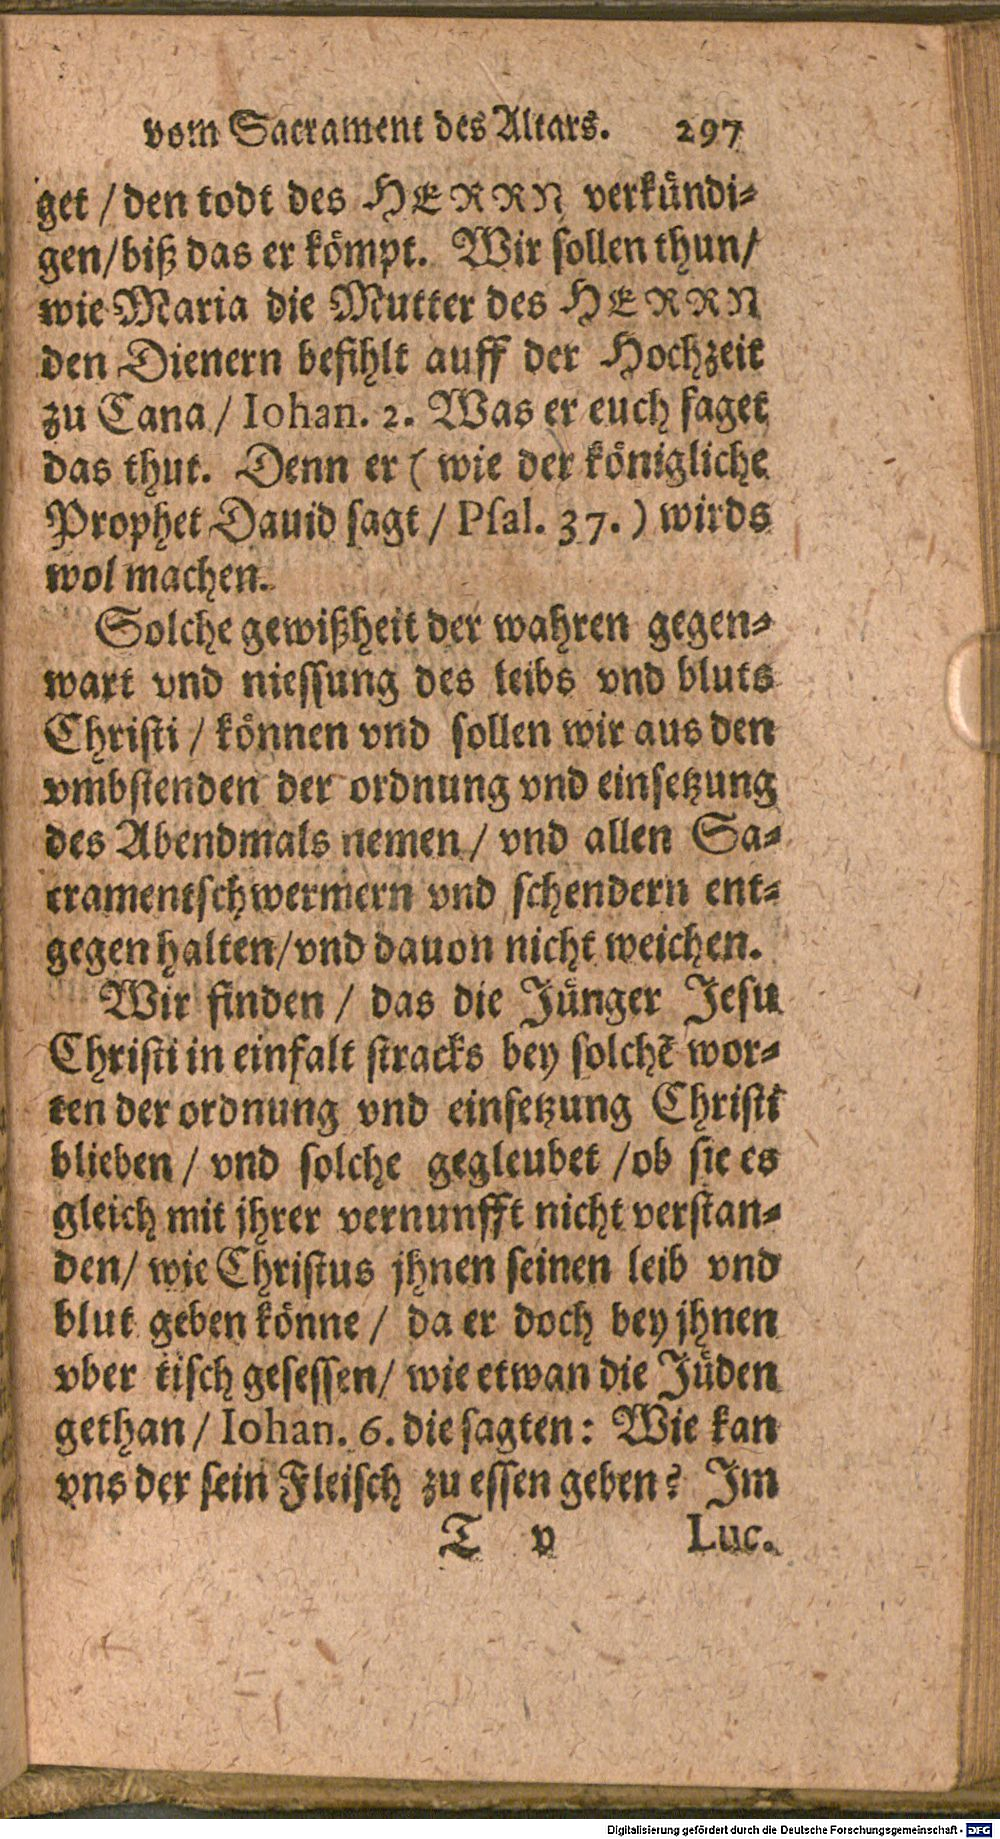 vom Sacrament des Altars. 297
get / den todt des HERRN verkündi-
gen/ biß das er kömpt. Wir sollen thun/
wie Maria die Mutter des HERRN
den Dienern befihlt auff der Hochzeit
zu Cana / Iohan. 2. Was er euch saget
das thut. Denn er ( wie der königliche
Prophet Dauid sagt / Psal. 37. ) wirds
wol machen.
Solche gewißheit der wahren gegen-
wart vnd niessung des leibs vnd bluts
Christi / können vnd sollen wir aus den
vmbstenden der ordnung vnd einsetzung
des Abendmals nemen / vnd allen Sa-
cramentschwermern vnd schendern ent-
gegen halten/ vnd dauon nicht weichen.
Wir finden / das die Jünger Jesu
Christi in einfalt stracks bey solchē wor-
ten der ordnung vnd einsetzung Christi
blieben / vnd solche gegleubet / ob sie es
gleich mit jhrer vernunfft nicht verstan-
den/ wie Christus jhnen seinen leib vnd
blut geben könne / da er doch bey jhnen
vber tisch gesessen/ wie etwan die Jüden
gethan / Iohan. 6. die sagten: Wie kan
vns der sein Fleisch zu essen geben? Im
T v Luc.
Digitalisierung gefördert durch die Deutsche Forschungsgemeinschaft - DFG